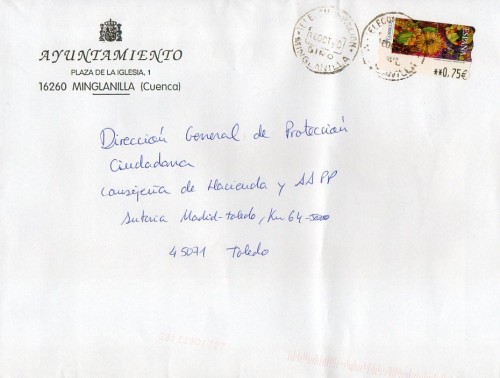 AYUNTAMIENTO
PLAZA DE LA IGLESIA, 1
16260 MINGLANILLA (Cuenca)
ESPAÑA
**0,75€
MINGLANILLA
Dirección General de Protección
Ciudadana
Consejería de Hacienda y AAPP
Autovía Madrid-Toledo, Km 64
45071 Toledo